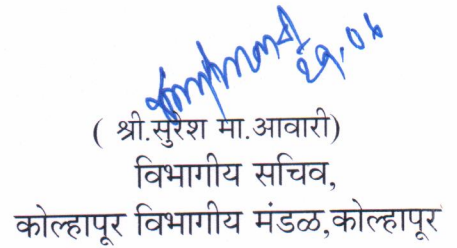 29.06
( श्री.सुरेश मा.आवारी)
विभागीय सचिव,
कोल्हापूर विभागीय मंडळ,कोल्हापूर